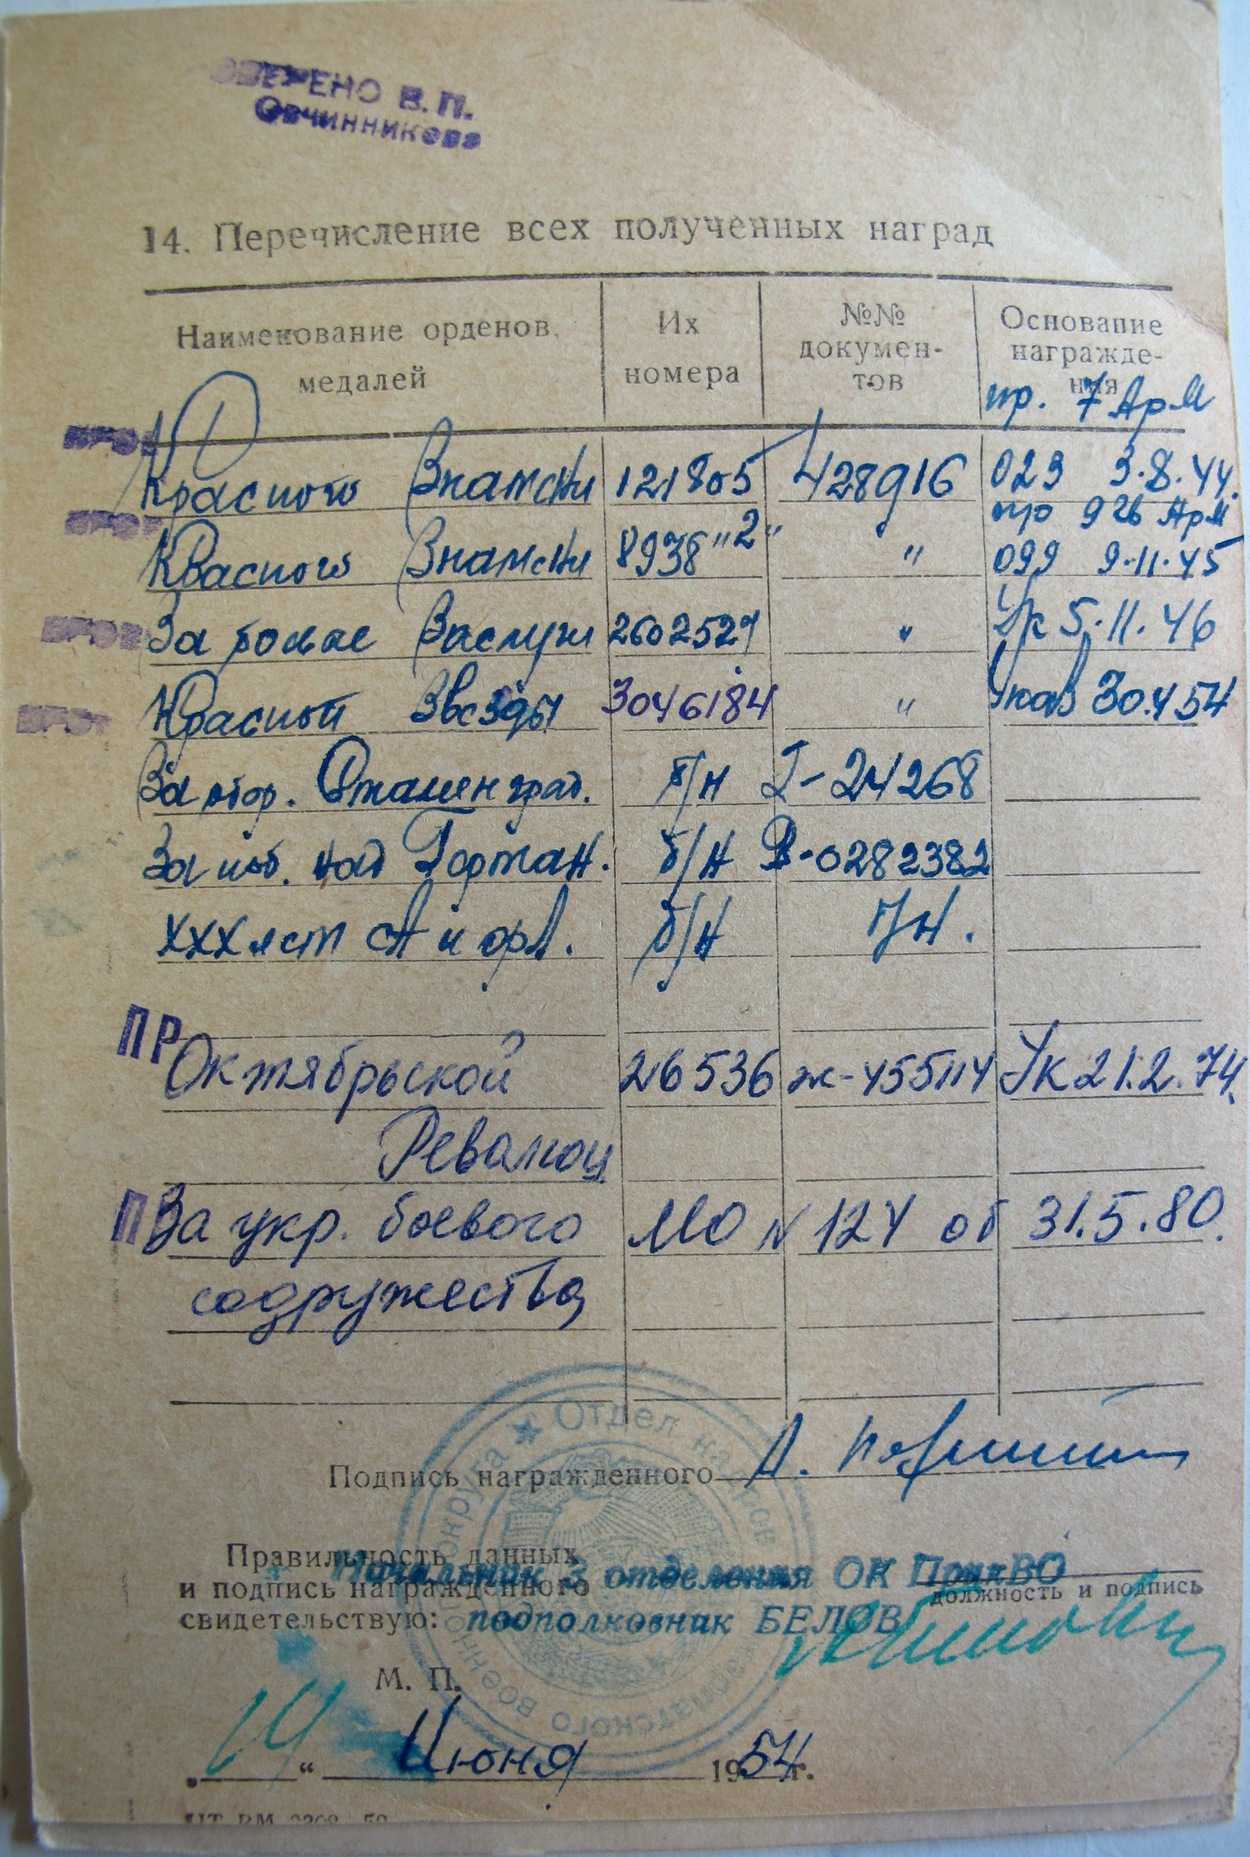 СВЕРЕНО В. П.
Овчинникова
14. Перечисление всех полученных наград
Наименование орденов, медалей
Их номера
№№ докумен-тов
Основание награжде-ния
пр. 7 АрМ
Красного Знамени 121805 428916 023 3.8.44.
пр 926 АрМ
Красного Знамени 8938 "2" " 099 9.11.45
За боевые Заслуги 2602527 " Ук 5.11.46
Красной Звезды 3046184 " Указ 30.4.54
За обор. Сталинград. б/н Г-24268
За поб. над Герман. б/н В-0282382
XXX лет СА и Фл. б/н б/н.
ПР
Октябрьской 26536 Ж-455114 Ук 21.2.74.
Революц
За укр. боевого МО N 124 об 31.5.80.
содружества
Подпись награжденного
Правильность данных
Начальник 3 отделения ОК ПрикВО
и подпись награжденного
должность и подпись
свидетельствую: подполковник БЕЛОВ
М. П.
"19" Июня 1954 г.